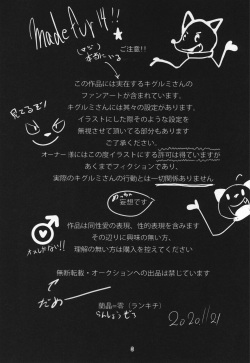 made fur 14!!
ご注意!!
この作品には実在するキグルミさんの
ファンアートが含まれています。
キグルミさんには其々の設定があります。
イラストにした際そのような設定を
無視させて頂いてる部分もあります
ご了承ください。
オーナー様にはこの度イラストにする許可は得ていますが
あくまでフィクションであり、
実際のキグルミさんの行動とは一切関係ありません
めっちゃ
妄想です
作品は同性愛の表現、性的表現を含みます
その辺りに興味の無い方、
理解の無い方は購入を控えてください
無断転載・オークションへの出品は禁じています
だめー
蘭晶=零（ランキチ）
らんしょうぜろ
2020 11/21